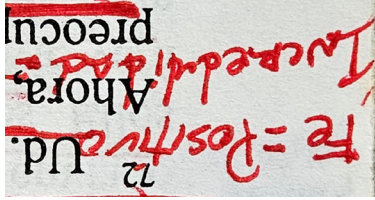 Fe = Positivo
Ud.
Incredulidad =
Ahora,
preocup